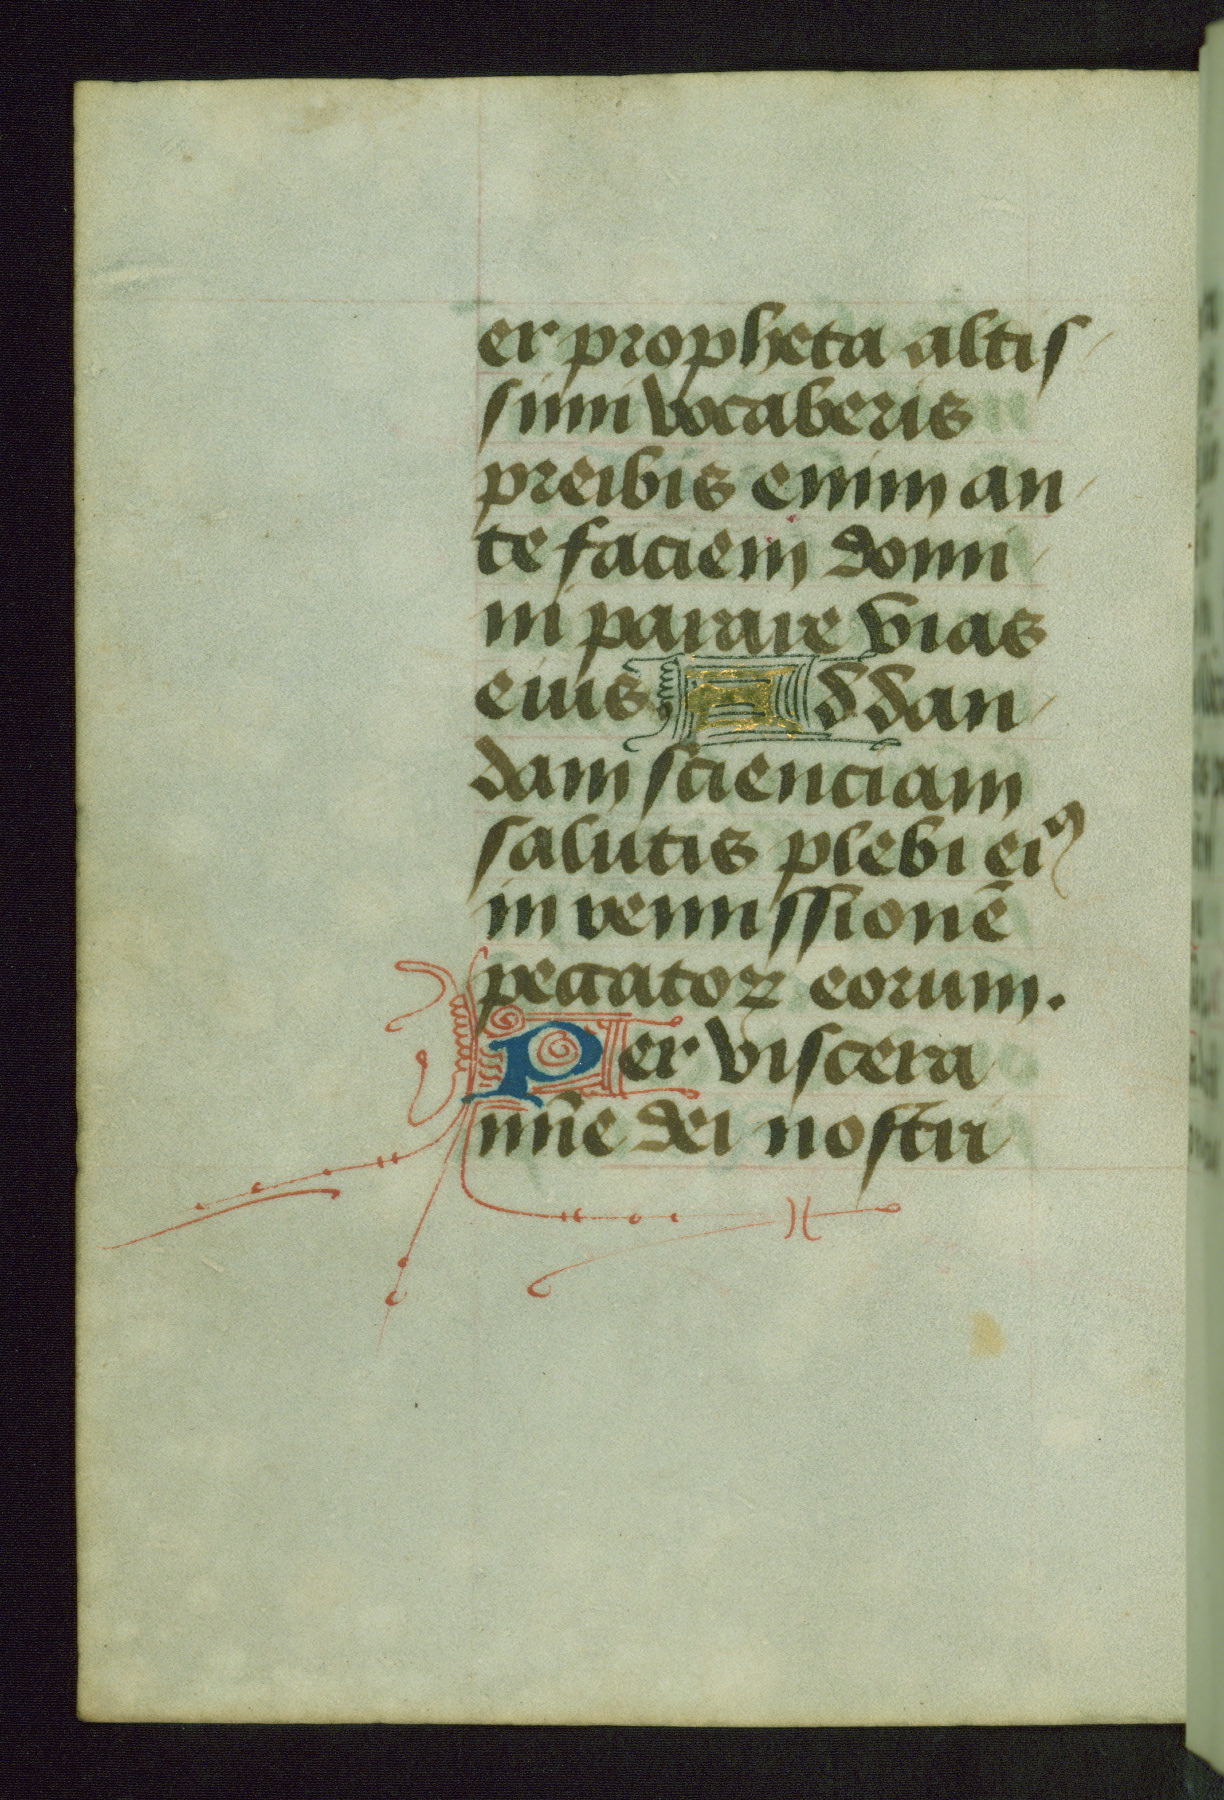 er propheta altis
simi vocaberis
preibis enim an
te faciem domi
ni parare vias
eius Ad dan
dam scienciam
salutis plebi eiꝰ
in remissionē
peccatoꝝ eorum.
Per viscera
mīe dei nostri